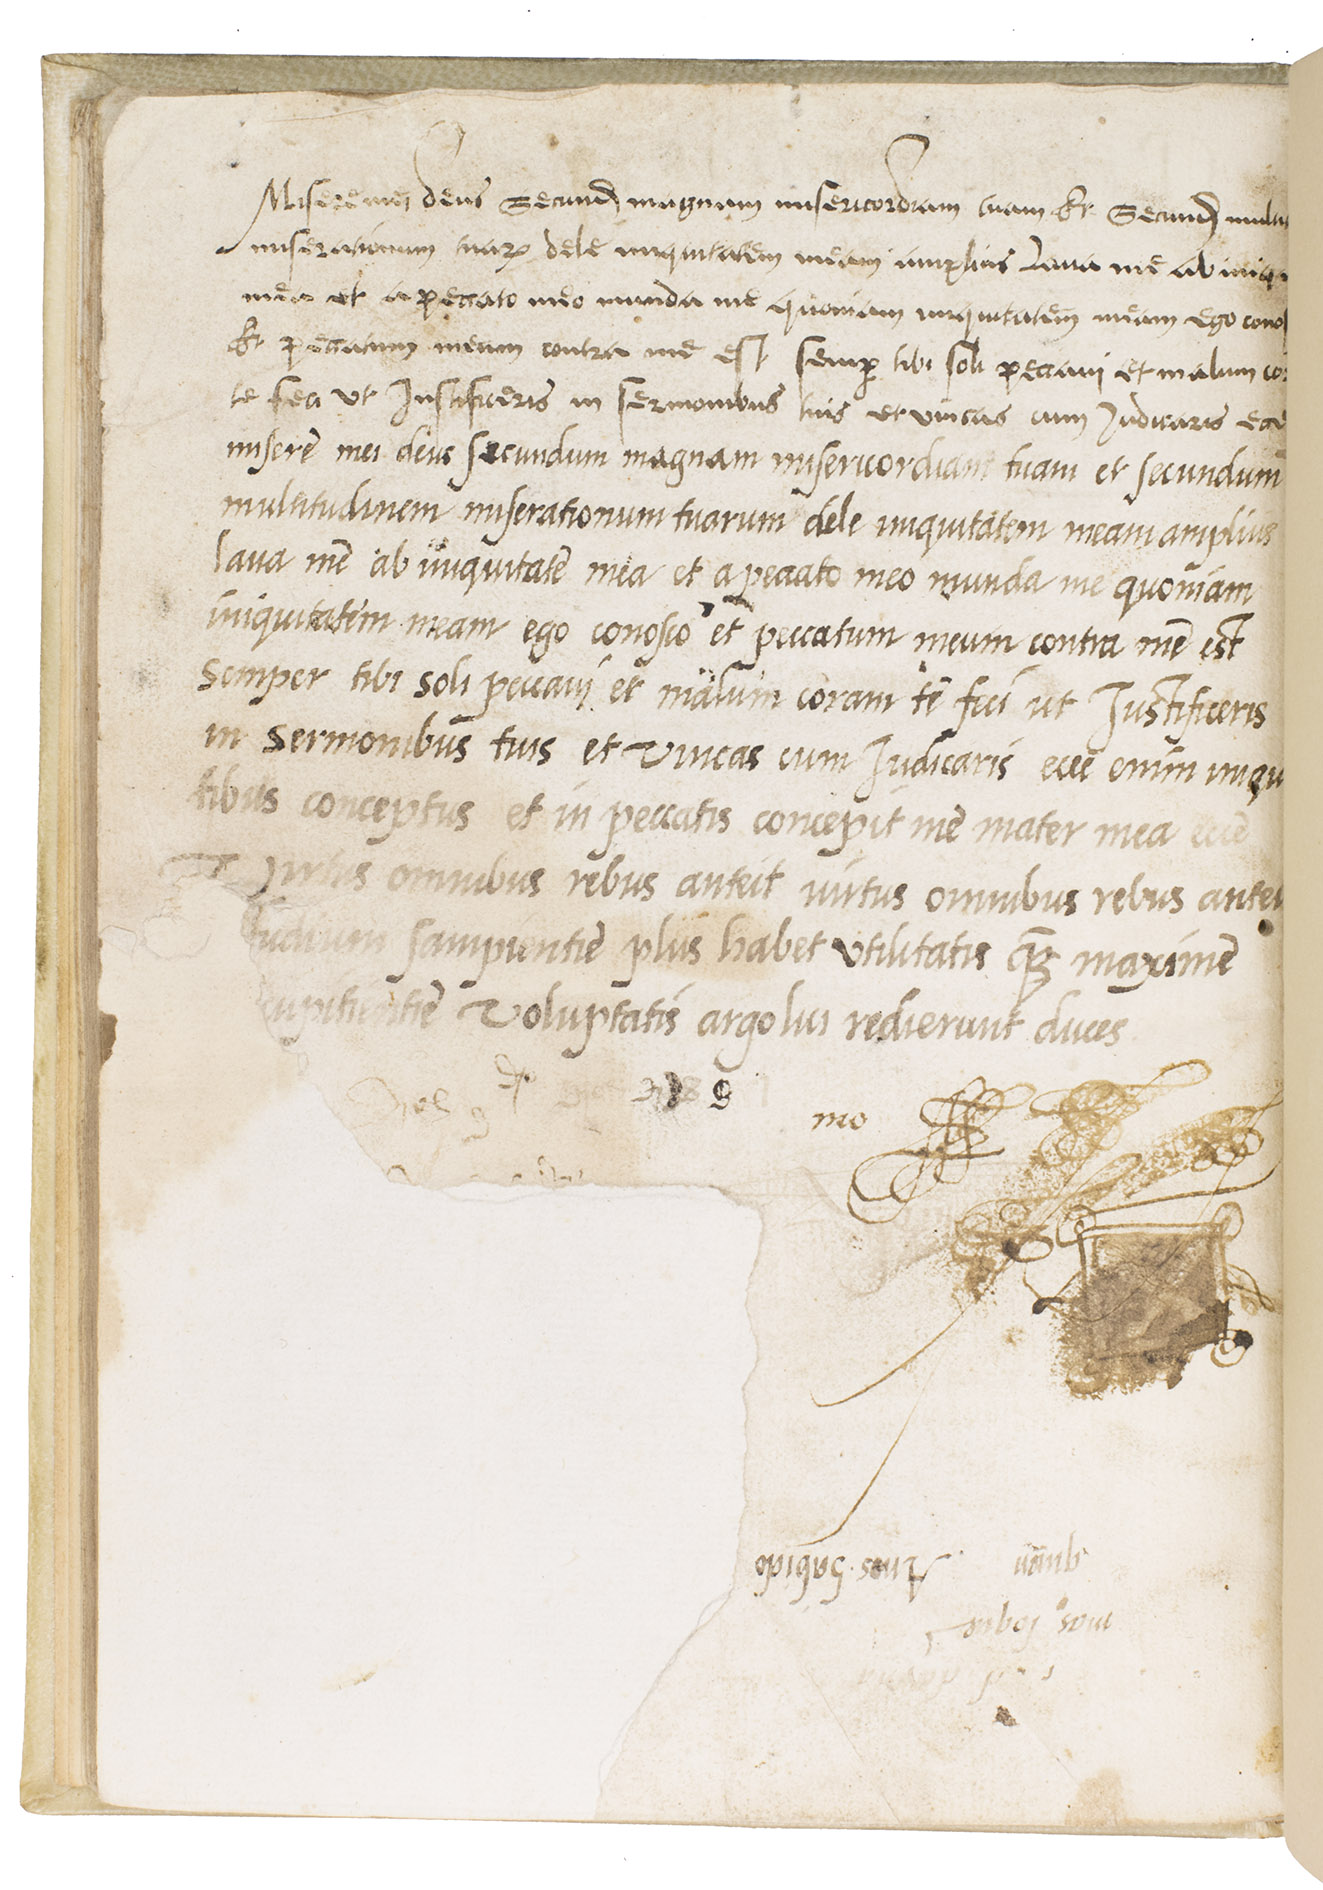 Miserere mei deus Secund magnam misericordiam tuam et Secund
miserationum tuar dele iniquitatem meam amplius Laua me ab
mea et a peccato meo munda me quoniam iniquitatem meam ego
et peccatum meum contra me est semp tibi soli peccaui et malum
te feci ut Justificeris in sermonibus tuis et vincas cum Judicaris
misere mei deus secundum magnam misericordiam tuam et secundum
multitudinem miserationum tuarum dele iniquitatem meam amplius
laua me ab iniquitate mea et a peccato meo munda me quoniam
iniquitatem meam ego conosco et peccatum meum contra me est
semper tibi soli peccaui et malum coram te feci ut Justificeris
in sermonibus tuis et Vincas cum Judicaris ecce enim iniqui
tibus conceptus et in peccatis concepit me mater mea ecce
Virtus omnibus rebus anteit virtus omnibus rebus antei
studium sampientie plus habet Vtilitatis maxime
Voluptatis argolui redierunt duces
mo